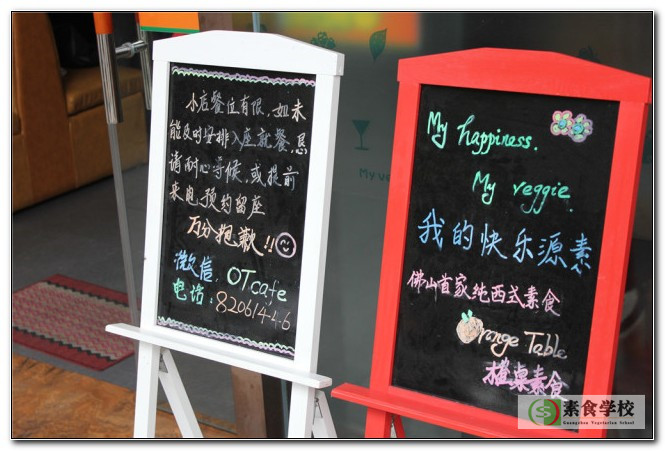 小店餐位有限,如未
能及时安排入座就餐,恳
请耐心等候,或提前
来电预约留座
万分抱歉!!
微信: OTcafe
电话: 82061446
My happiness.
My veggie.
我的快乐源素
佛山首家纯西式素食
Orange Table
橙桌素食
My ve
素食学校
Guangzhou Vegetarian School